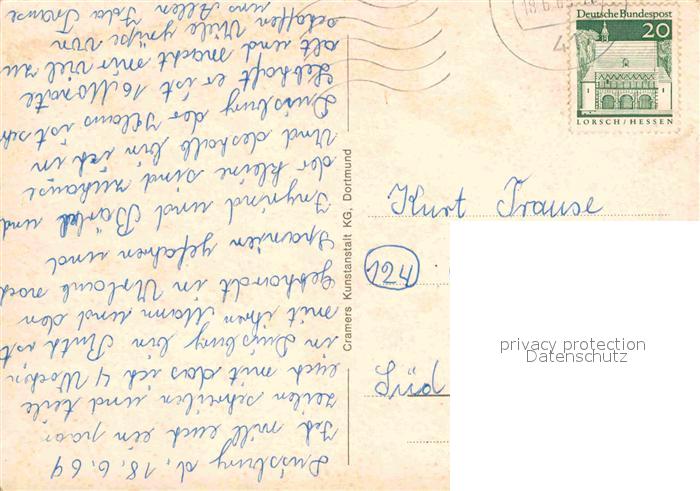 Duisburg d, 18.6.69
Ich will euch ein paar
zeilen schreiben und teile
euch mit das ich 4 Wochen
in Duisburg bin Ruth ist
mit ihren Mann und den
Gebhardt in Urlaub nach
Spanien gefahren und
Ingrind und Bärbel und
der kleine sind zuhause
Und deshalb bin ich in
Duisburg der Klaus ist schr
Lebhaft er ist 16 Monate
alt und macht mir viel zu
schaffen Viele grüße von
uns Allen Ida Trause
Cramers Kunstanstalt KG, Dortmund
18.6.69
41
Deutsche Bundespost
20
LORSCH/HESSEN
Kurt Trause
124
Süd
privacy protection
Datenschutz